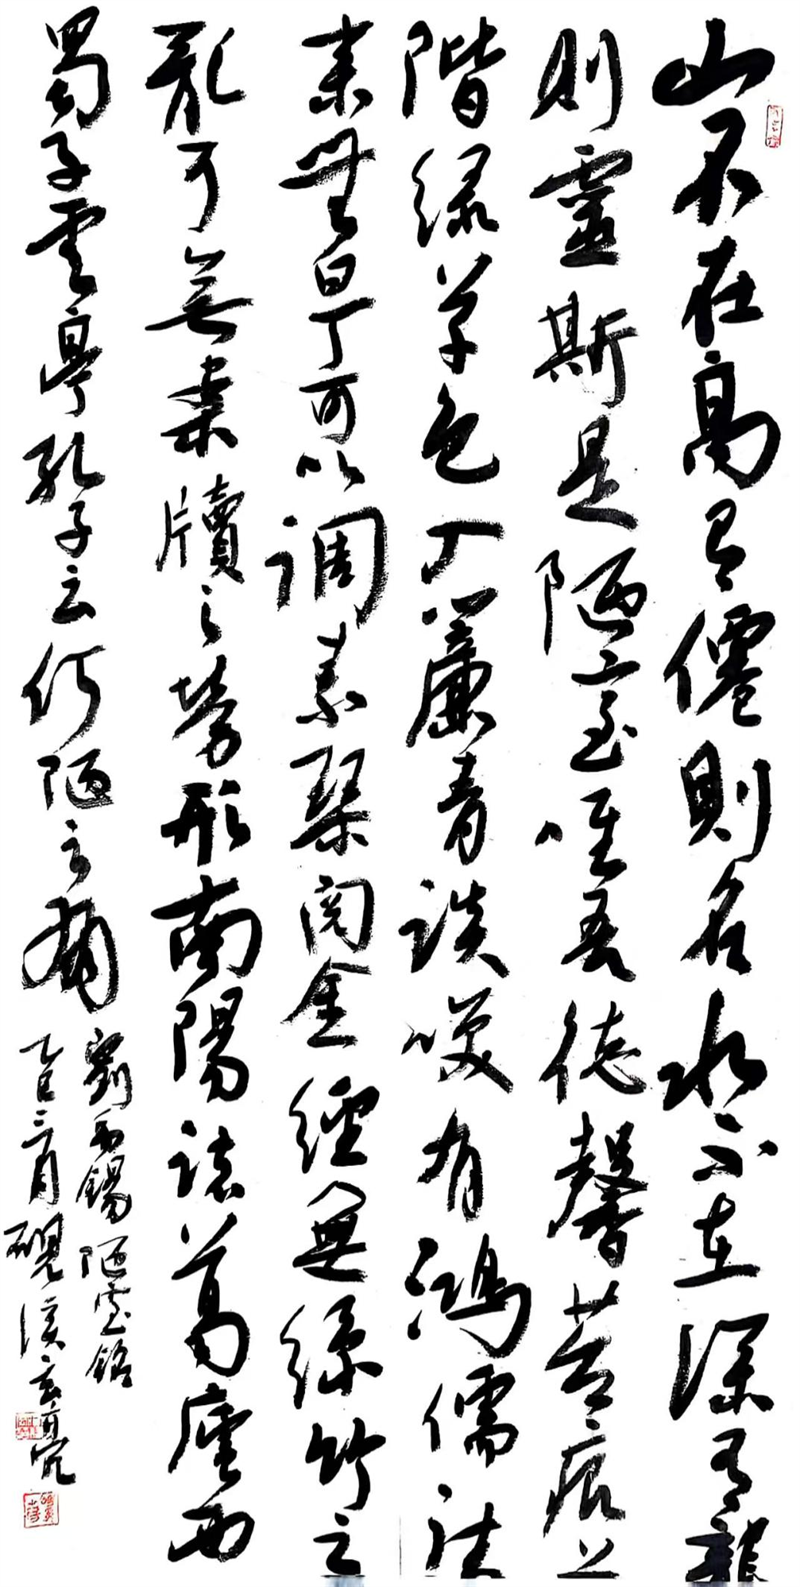 山不在高有僊則名水不在深有龍
則靈斯是陋室唯吾德馨苔痕上
階緑草色入簾青談笑有鴻儒往
来無白丁可以调素琴阅金經無絲竹之
亂耳無案牘之勞形南陽諸葛廬西
蜀子雲亭孔子云何陋之有
劉禹錫陋室銘
乙巳三月硯